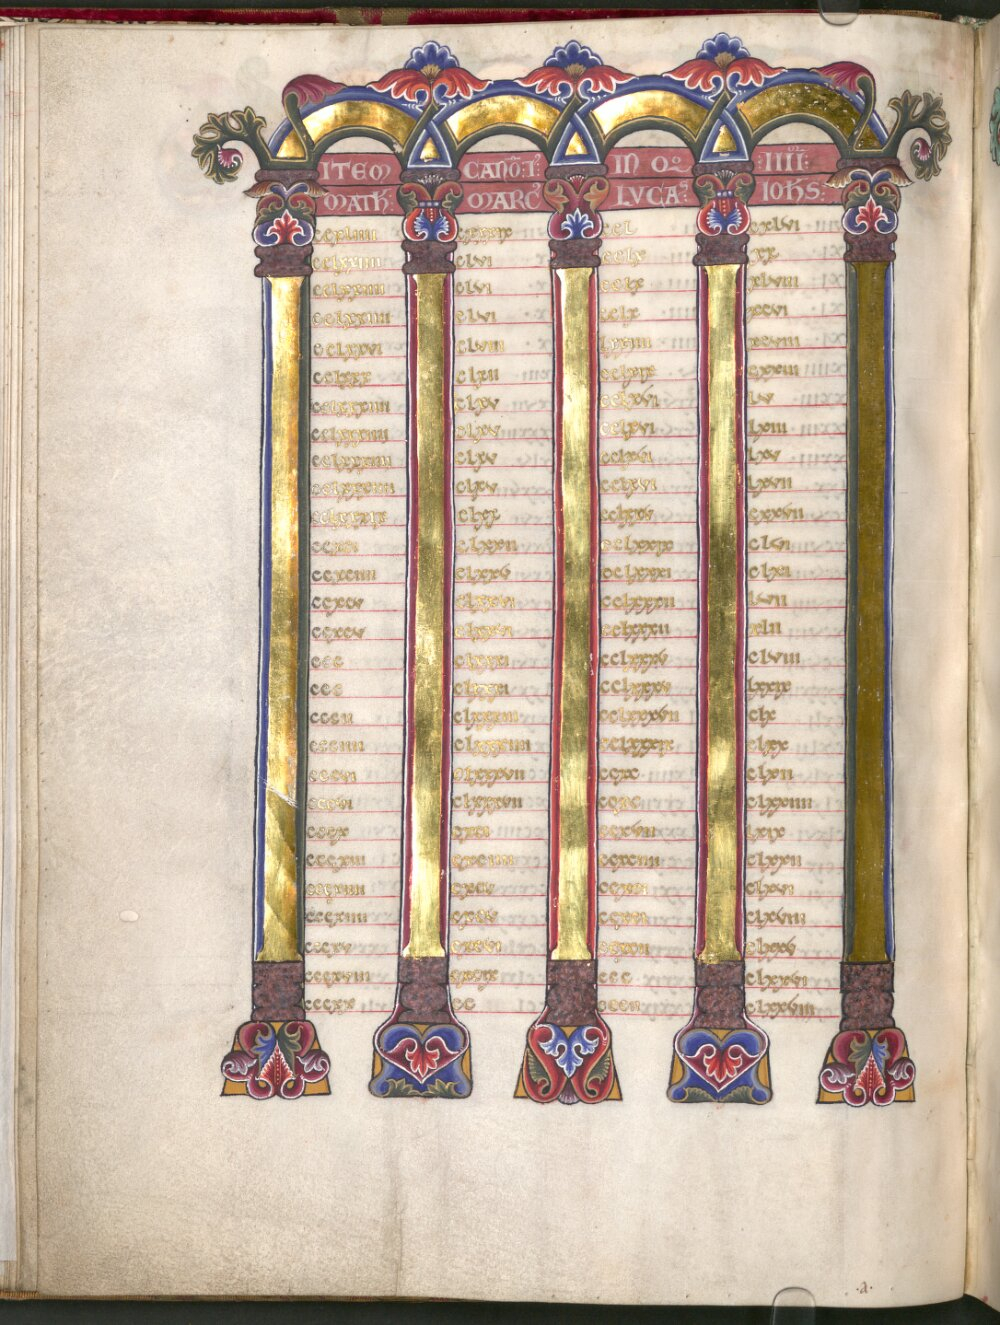 ITEM CANŌ:I' IN Qo :IIII:
MATH: MARC' LVCAS IOHS:
ccxliiii cxxxix ccl cxlvi
cclxxiiii clvi cclx xx
cclxxiiii clvi cclx xlviii
cclxxiiii clvi cclx xcvi
cclxxvi clviii lxxiiii xcviii
cclxxx clxii cclxix cxxiii
cclxxxiiii clxv cclxvi lv
cclxxxiiii clxv cclxvi lxiii
cclxxxiiii clxv cclxvi lxv
cclxxxiiii clxv cclxvi lxvii
cclxxxix clxx cclxxv cxxvii
ccxci clxxii cclxxix clvi
ccxciiii clxxv cclxxxi clxi
ccxcv clxxvi cclxxxii lvii
ccxcv clxxvi cclxxxii xlii
ccc clxxxi cclxxxv clviii
ccc clxxxi cclxxxv lxxix
cccii clxxxiii cclxxxvii clx
ccciiii clxxxiiii cclxxxix clxx
cccvi clxxxvii ccxc clxii
cccvi clxxxvii ccxc clxxiiii
cccx cxci ccxcvii lxix
cccxiii cxciiii ccxciiii clxxii
cccxiiii cxcv ccxci clxvi
cccxiiii cxcv ccxci clxviii
cccxv cxcvi ccxcii clxxv
cccxviii cxcix ccc clxxvi
cccxx cc cccii clxxviii
·a·